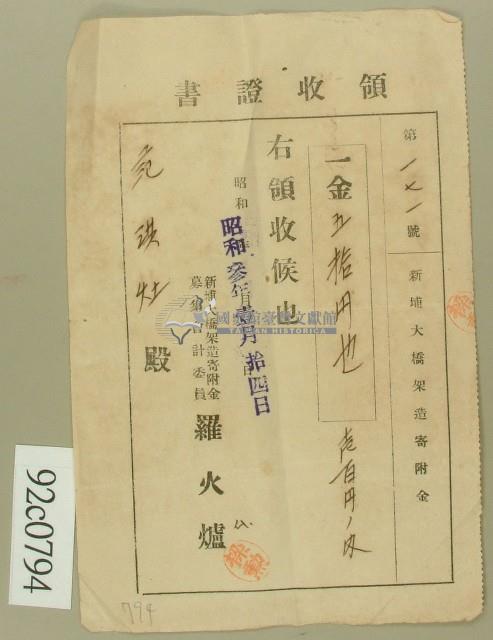 領收證書
第一七一號
新埔大橋架造寄附金
一金五拾円也
壱百円ノ内
右領收候也
昭和
昭和參年壹月拾四日
新埔大橋架造寄附金
募集會計委員
羅火爐
殿
國史館臺灣文獻館
TAIWAN HISTORICA
92c0794
794